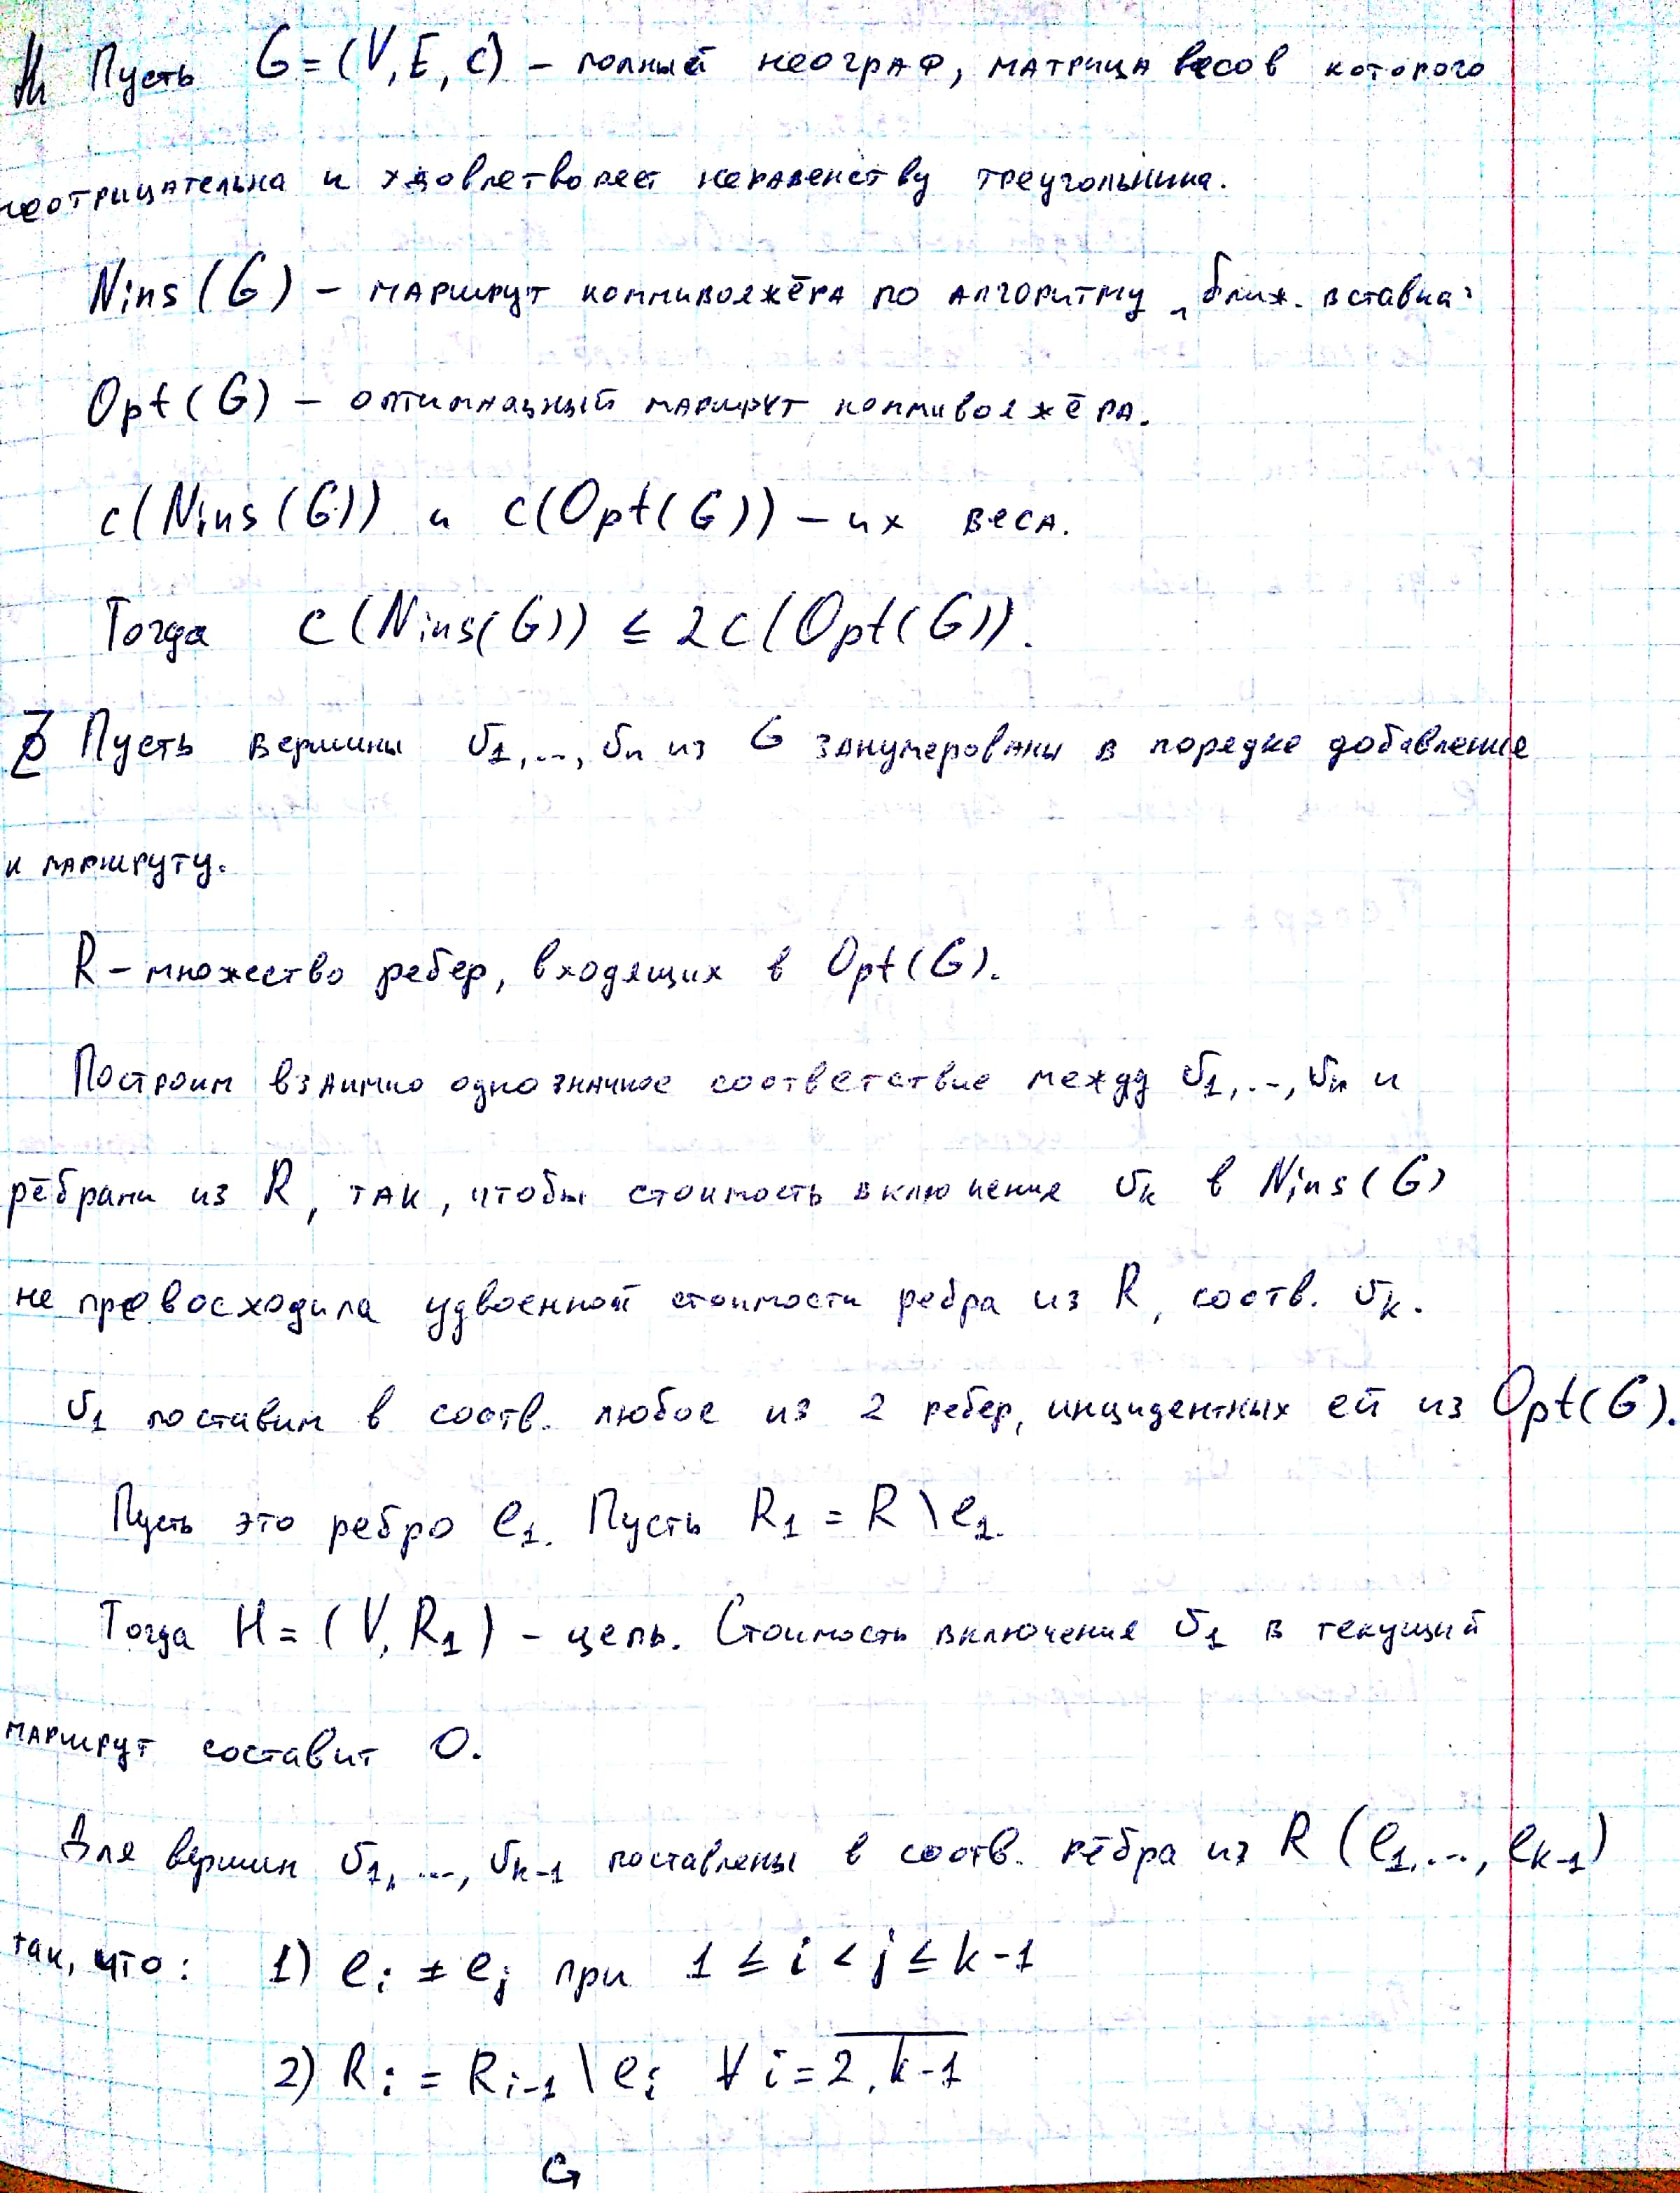 Th Пусть G = (V, E, c) – полный неограф, матрица весов которого
неотрицательна и удовлетворяет неравенству треугольника.
Nins(G) – маршрут коммивояжёра по алгоритму „ближ. вставка"
Opt(G) – оптимальный маршрут коммивояжёра.
c(Nins(G)) и c(Opt(G)) – их веса.
Тогда c(Nins(G)) ≤ 2c(Opt(G)).
Пусть вершины v1,..., vn из G занумерованы в порядке добавления
к маршруту.
R – множество ребер, входящих в Opt(G).
Построим взаимно однозначное соответствие между v1,.., vn и
рёбрами из R, так, чтобы стоимость включения vk в Nins(G)
не превосходила удвоенной стоимости ребра из R, соотв. vk.
v1 поставим в соотв. любое из 2 ребер, инцидентных ей из Opt(G).
Пусть это ребро e1. Пусть R1 = R \ e1.
Тогда H = (V, R1) – цепь. Стоимость включения v1 в текущий
маршрут составит 0.
Для вершин v1, ..., vk-1 поставлены в соотв. рёбра из R (e1,..., ek-1)
так, что: 1) ei ≠ ej при 1 ≤ i < j ≤ k-1
2) Ri = Ri-1 \ ei ∀ i = 2, k-1